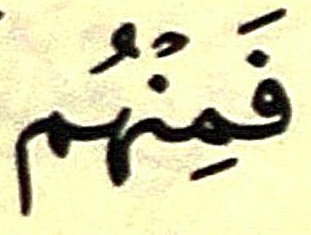 فَمِنْهُم